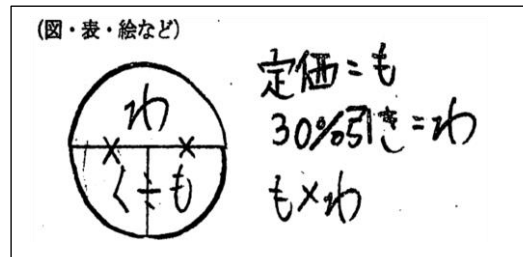 (図・表・絵など)
わ
× ×
く÷も
定価=も
30%引き=わ
も×わ